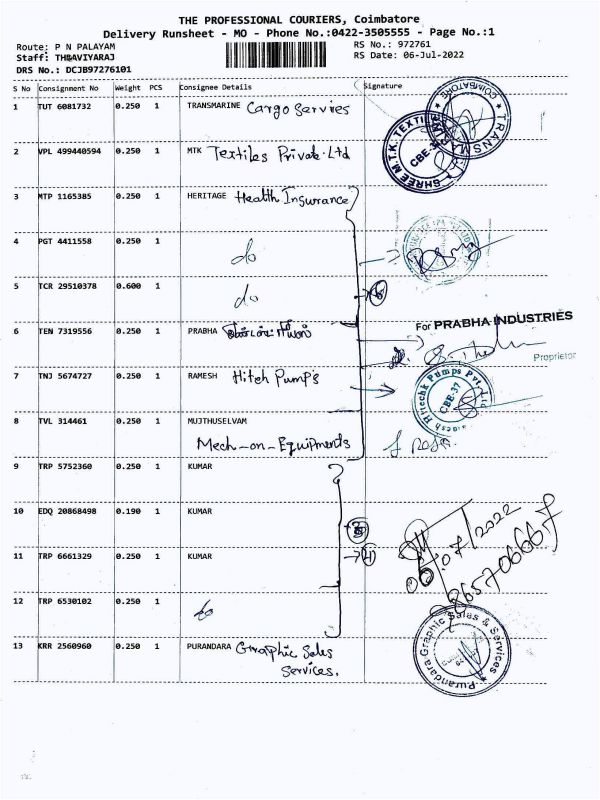 THE PROFESSIONAL COURIERS, Coimbatore
Delivery Runsheet - MO - Phone No.:0422-3505555 - Page No.:1
Route: P N PALAYAM RS No.: 972761
Staff: THBAVIYARAJ RS Date: 06-Jul-2022
DRS No.: DCJB97276101
S No Consignment No Weight PCS Consignee Details Signature
1 TUT 6081732 0.250 1 TRANSMARINE Cargo Servies
COIMBATORE TRANSMARINE
2 VPL 499440594 0.250 1 MTK Textiles Private.Ltd
SHREE M.T.K. TEXTILE CBE-37
3 MTP 1165385 0.250 1 HERITAGE Health Insurrance
4 PGT 4411558 0.250 1 do
5 TCR 29510378 0.600 1 do
6 TEN 7319556 0.250 1 PRABHA
For PRABHA INDUSTRIES
Proprietor
7 TNJ 5674727 0.250 1 RAMESH Hiteh Pump's
Ramesh Hitechk Pumps Pvt Ltd CBE-37
8 TVL 314461 0.250 1 MUJTHUSELVAM
Mech-on-Equipments
9 TRP 5752360 0.250 1 KUMAR
10 EDQ 20868498 0.190 1 KUMAR
11 TRP 6661329 0.250 1 KUMAR
12 TRP 6530102 0.250 1 do
13 KRR 2560960 0.250 1 PURANDARA Graphic Sales
Services.
Purandara Graphic Sales & Services